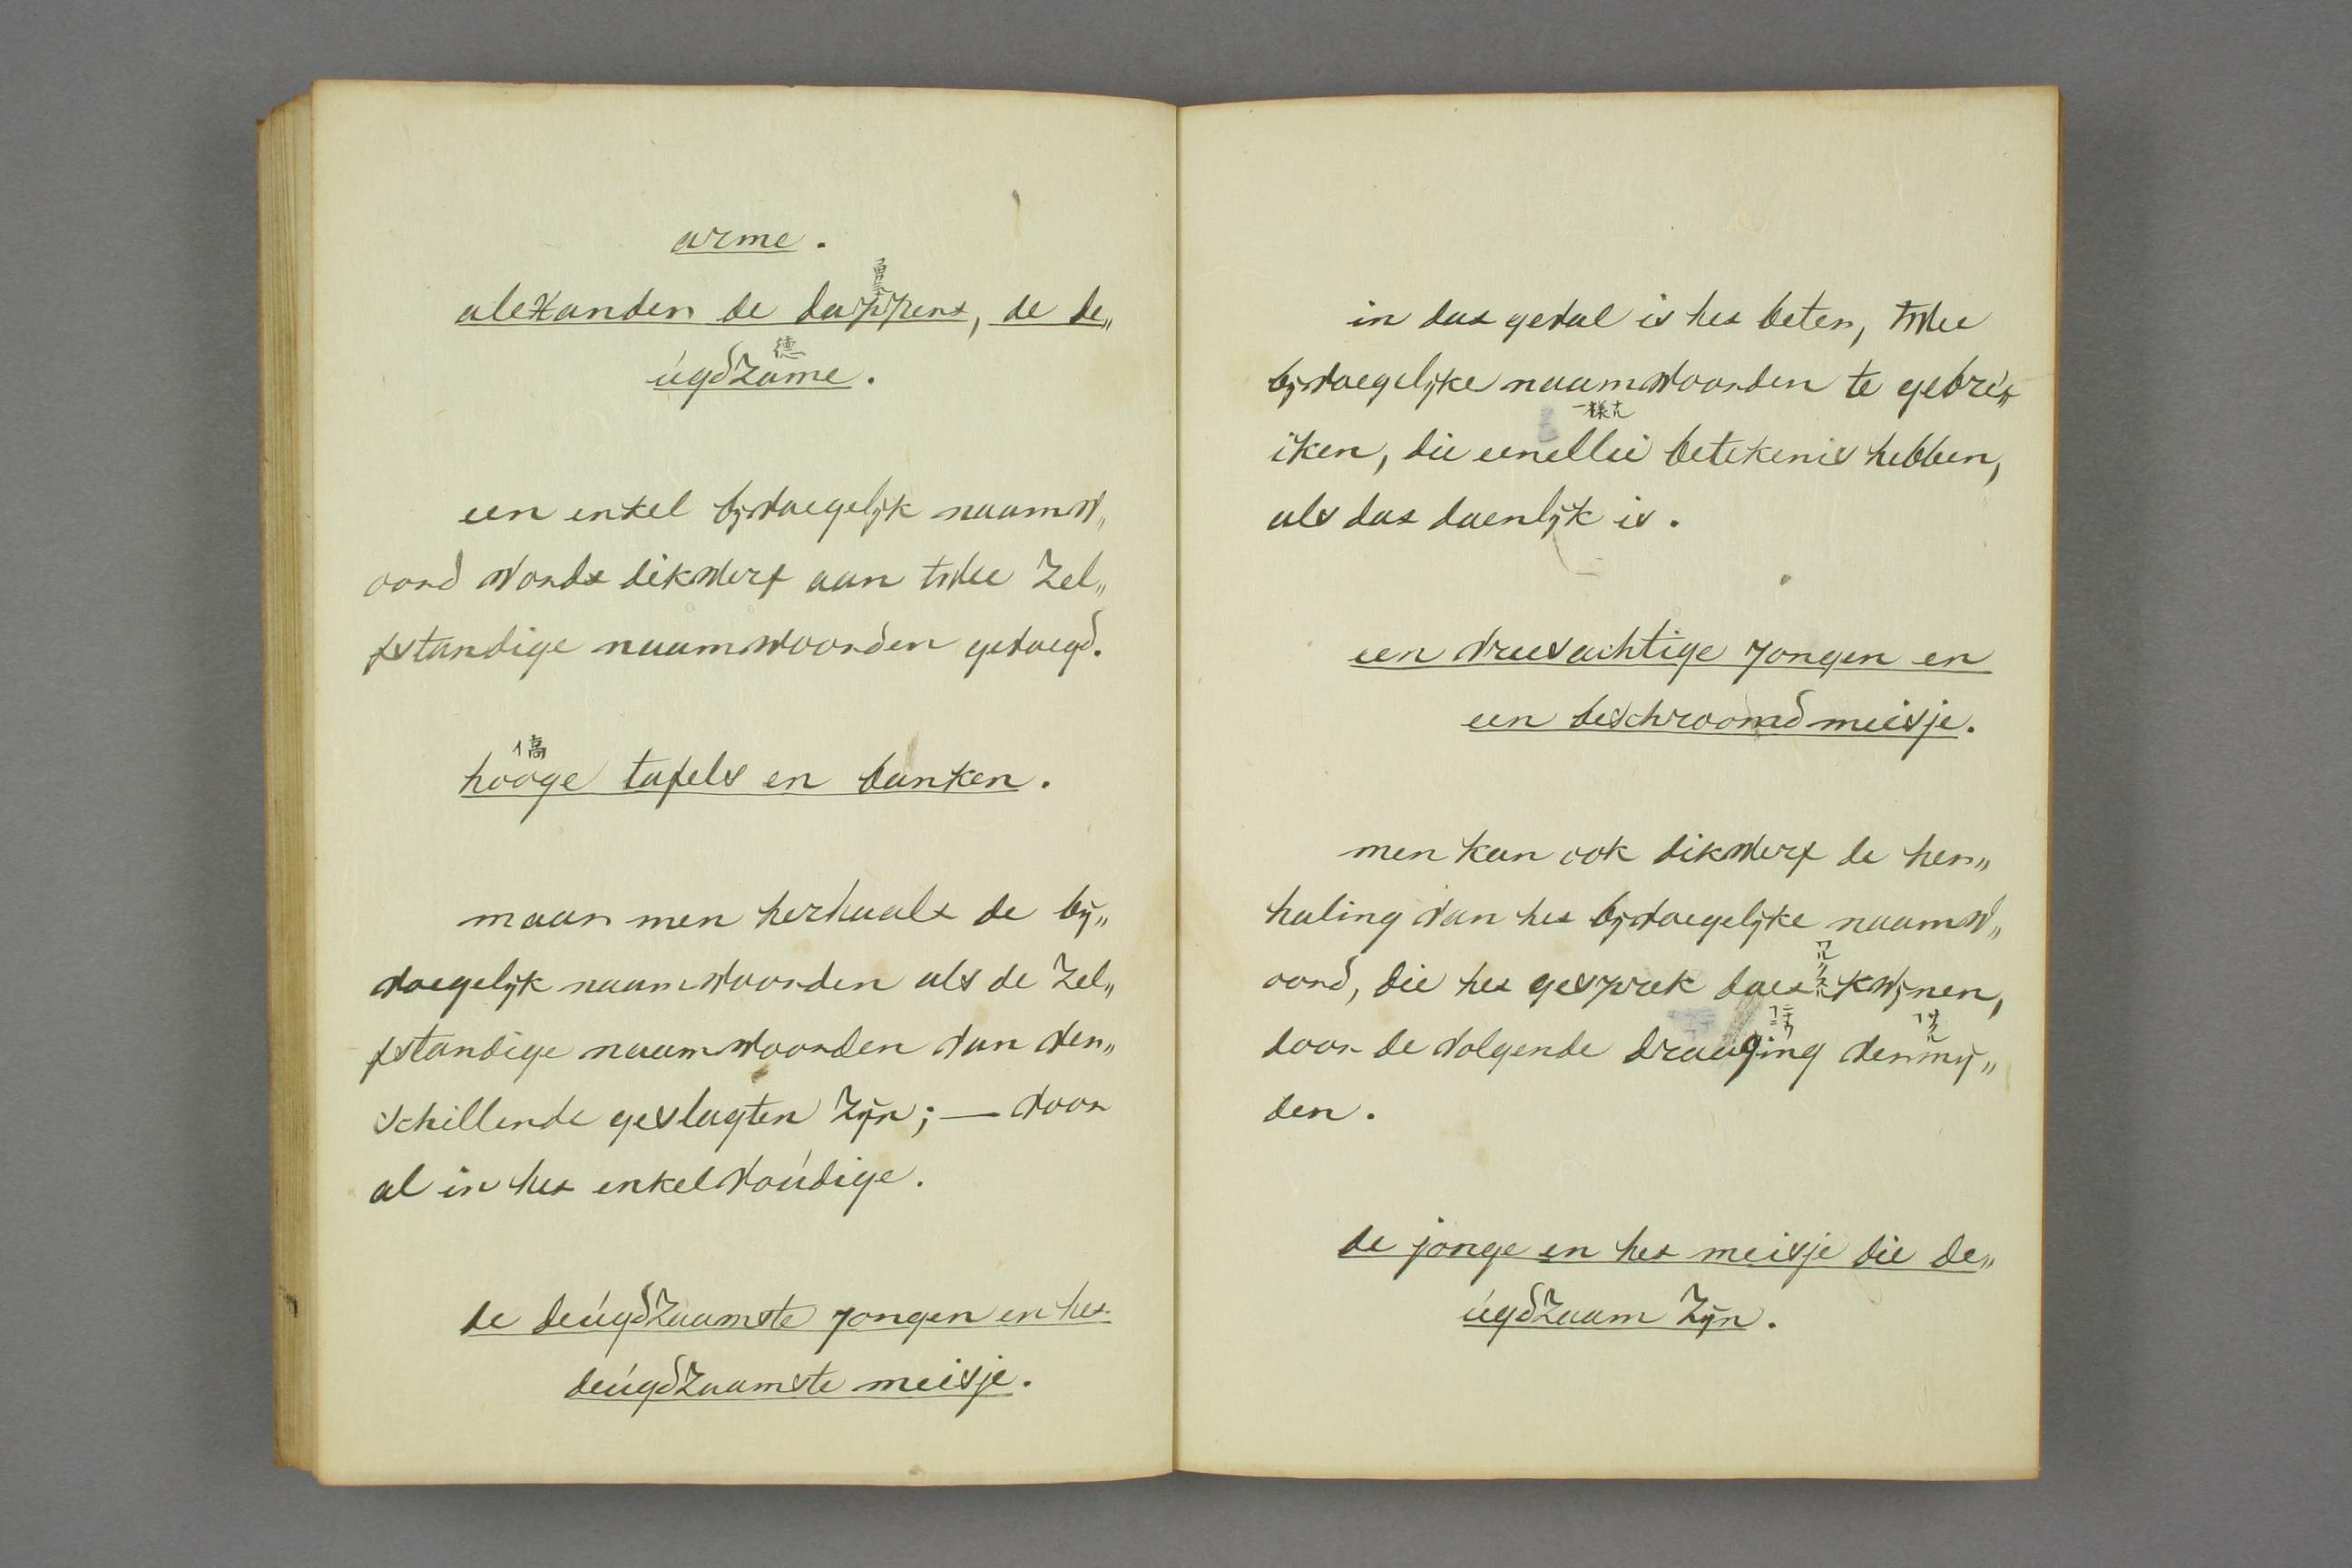 arme.
alexander de dappere, de de„
úgdzame.
een enkel bijvoegelijk naamw„
oord wordt dikwerf aan twee zel„
fstandige naamwoorden gevoegd.
hooge tafels en banken.
maar men herhaalt de bij„
voegelijk naamwoorden als de zel„
fstandige naamwoorden van ver„
schillende geslagten zijn; — voor
al in het enkelvoúdige.
de deúgdzaamste jongen en het
deúgdzaamste meisje.
in dat geval is het beter, twee
bijvoegelijke naamwoorden te gebrú„
iken, die eenellei betekenis hebben,
als dat doenlijk is.
een vreesachtige jongen en
een beschroomd meisje.
men kan ook dikwerf de her„
haling van het bijvoegelijke naamw„
oord, die het gesprek doet kwijnen,
door de volgende draaging vermij„
den.
de jonge en het meisje die de„
úgdzaam zijn.